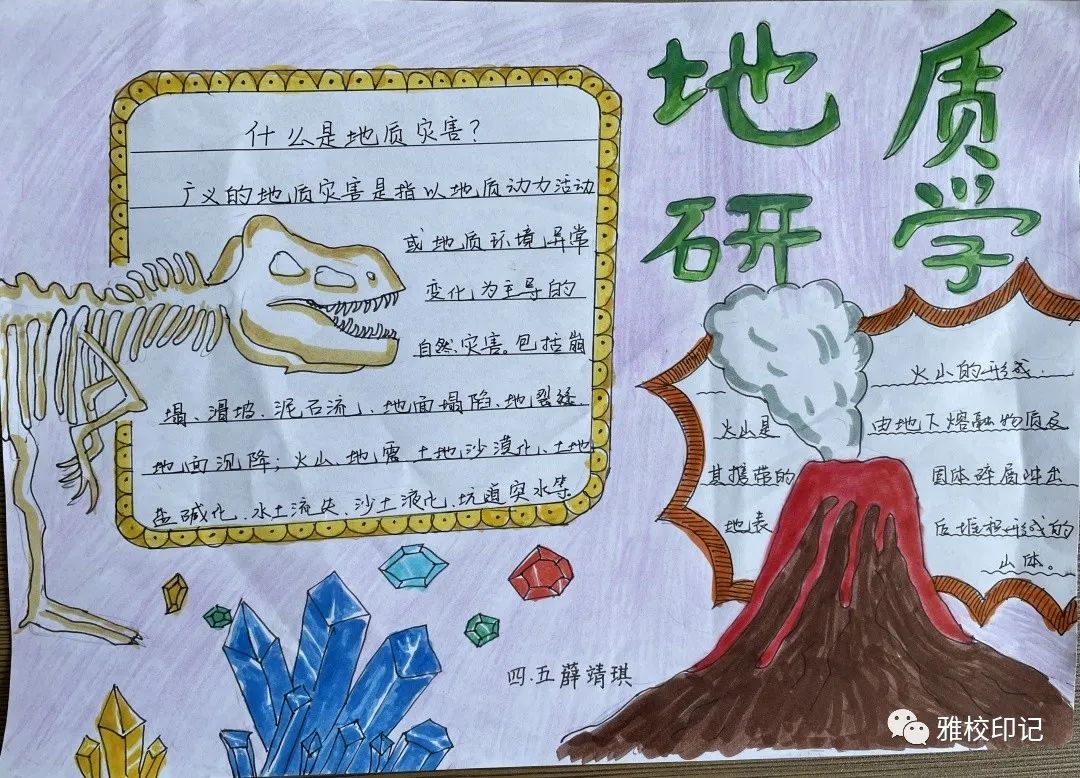 地质
研学
什么是地质灾害?
广义的地质灾害是指以地质动力活动
或地质环境异常
变化为主导的
自然灾害。包括崩
塌、滑坡、泥石流、地面塌陷、地裂缝
地面沉降;火山、地震 土地沙漠化、土地
盐碱化、水土流失、沙土液化、坑道突水等
火山的形成.
火山是 由地下熔融物质及
其携带的 固体碎屑冲出
地表 后堆积形成的
山体。
四.五薛靖琪
雅校印记